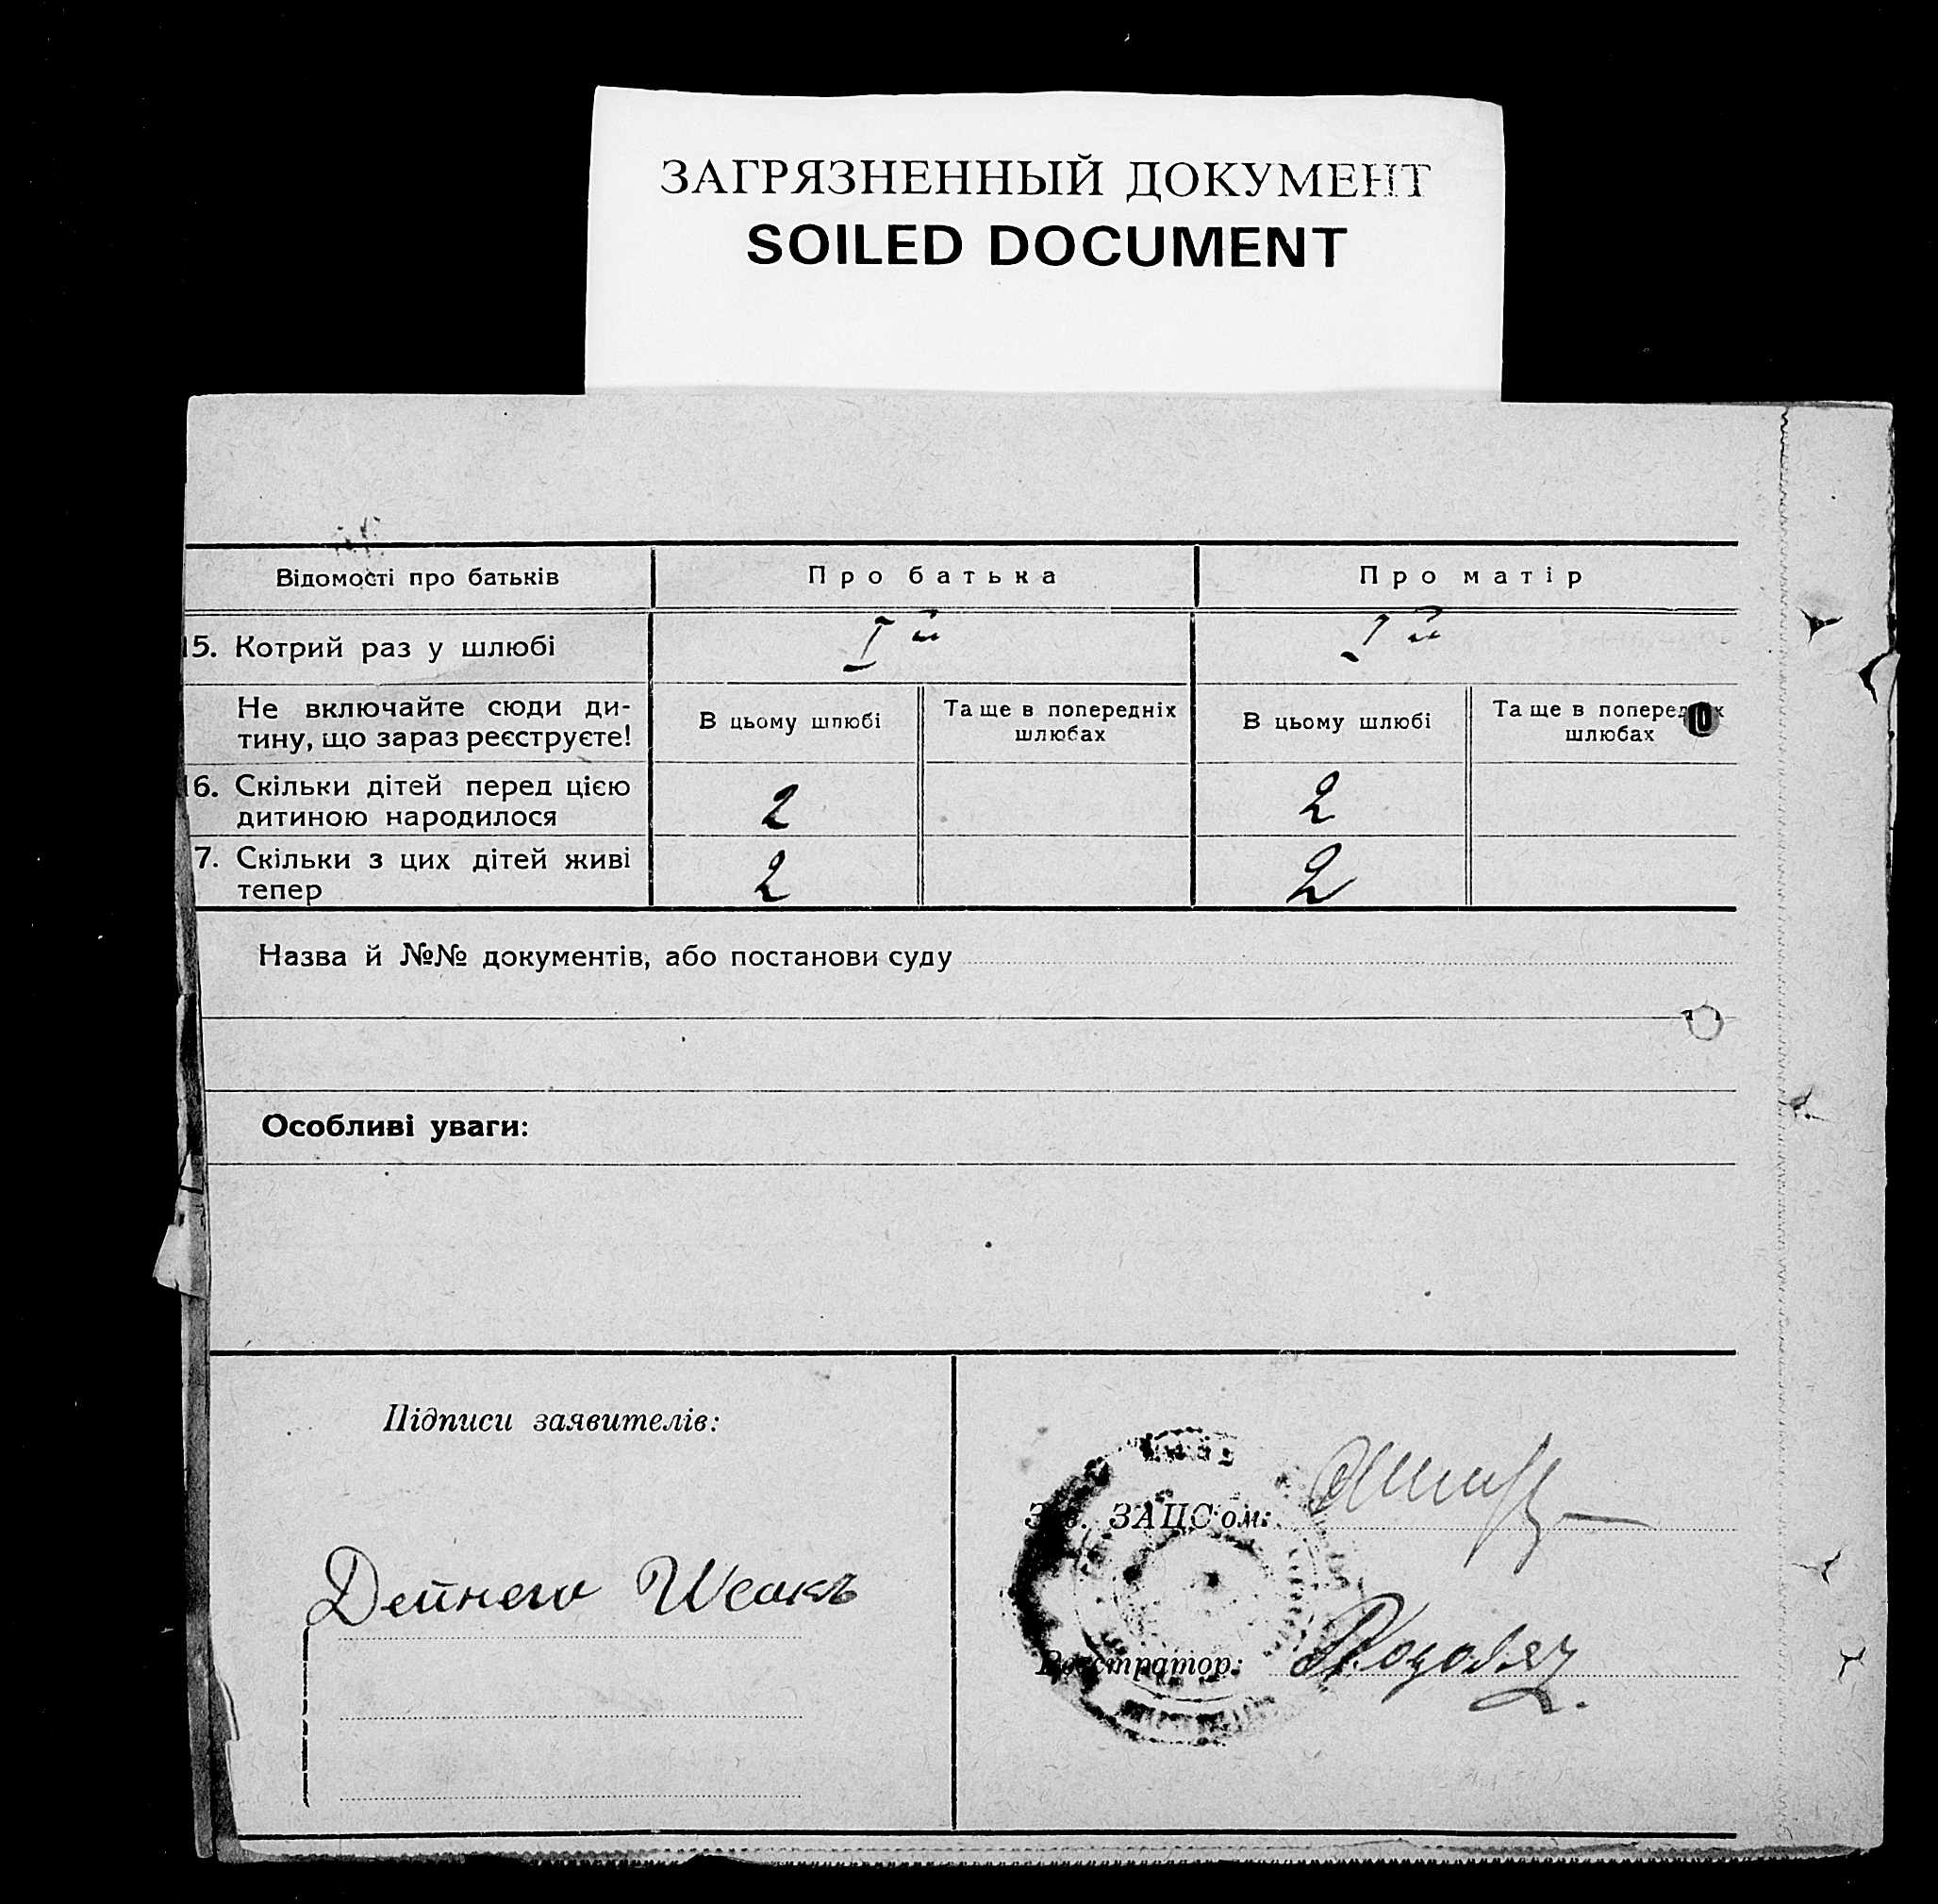 ЗАГРЯЗНЕННЫЙ ДОКУМЕНТ
SOILED DOCUMENT
Відомості про батьків
Про батька
Про матір
15. Котрий раз у шлюбі
Iй
Iй
Не включайте сюди ди-
тину, що зараз реєструєте!
В цьому шлюбі
Та ще в попередніх
шлюбах
В цьому шлюбі
Та ще в попередніх
шлюбах
16. Скільки дітей перед цією
дитиною народилося
2
2
7. Скільки з цих дітей живі
тепер
2
2
Назва й №№ документів, або постанови суду
Особливі уваги:
Підписи заявителів:
Зав. ЗАЦС'ом:
Дейнега
Реєстратор: